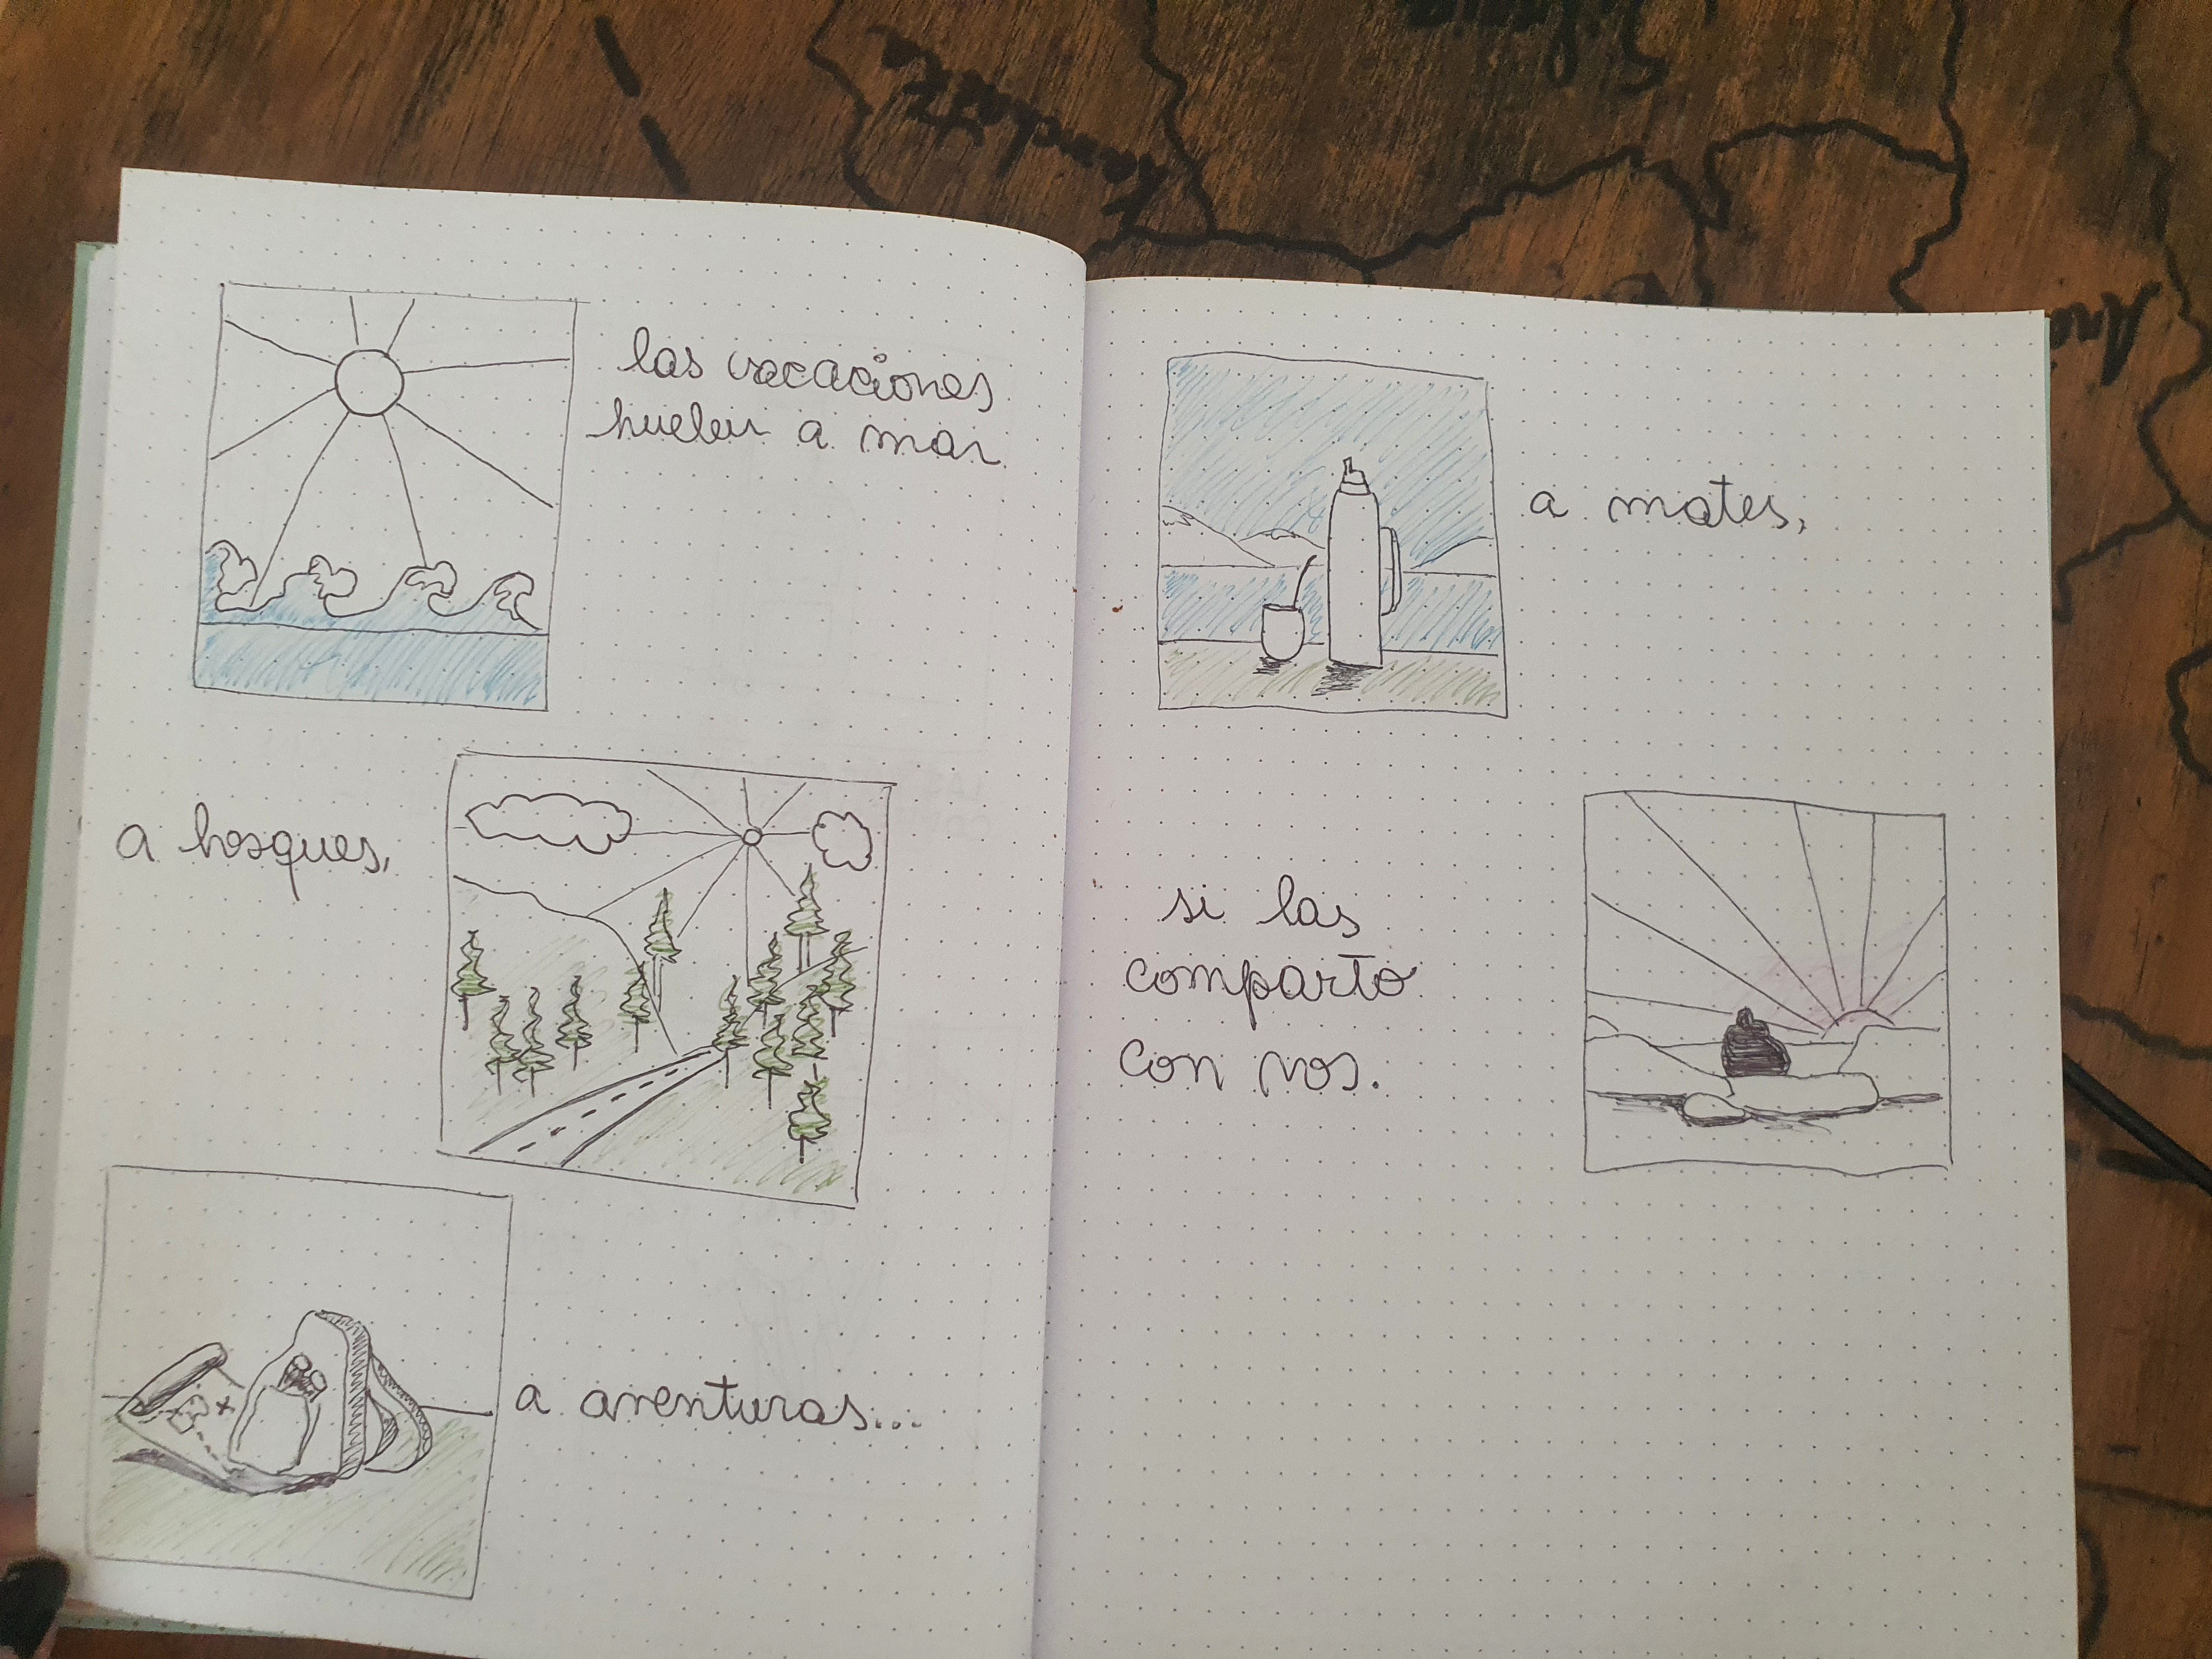 las vacaciones
huelen a mar
a bosques,
a aventuras...
a mates,
si las
comparto
con vos.